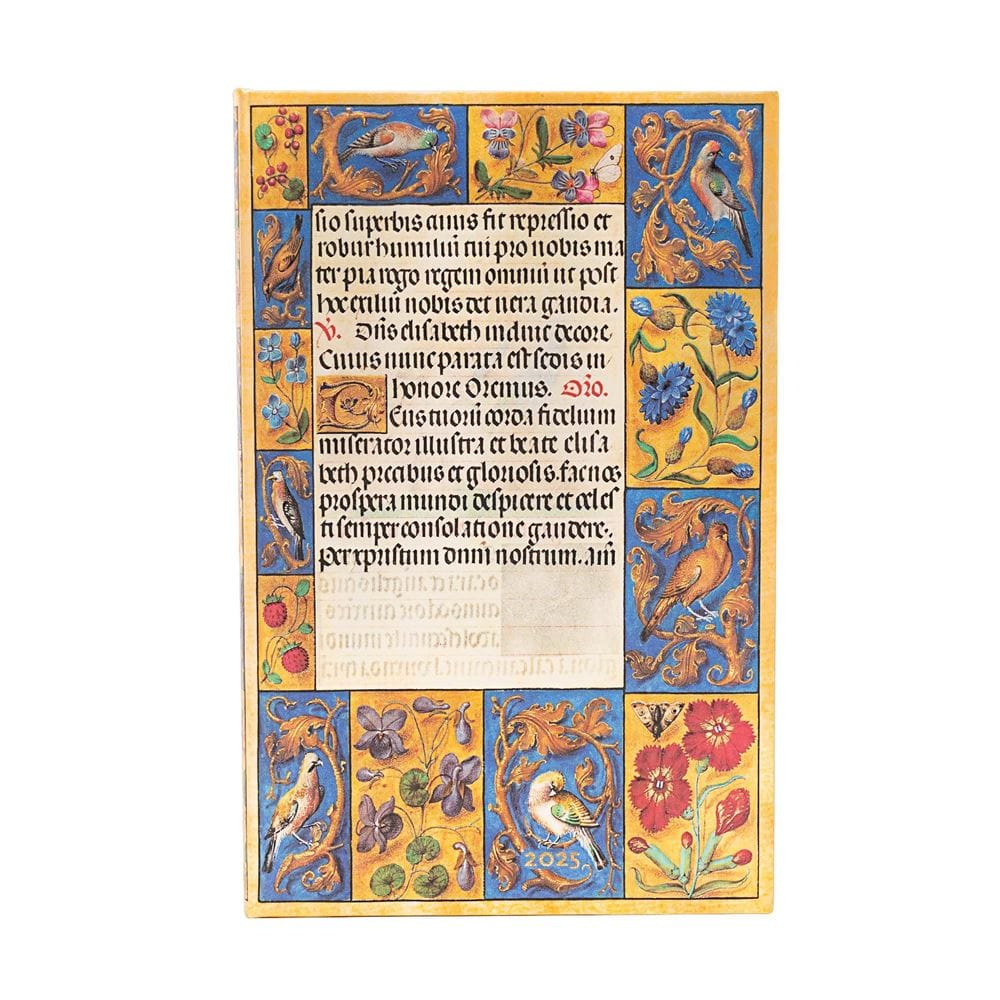 sio superbis cuius fit repressio et
robur humiliū tui pro nobis ma
ter pia rogo regem omniū ut post
hoc exiliū nobis det vera gaudia.
V. Diūs elisabeth induit decore
Cuius nunc parata est sedis in
honore Oremus. Orō.
Deus tuorū corda fidelium
miserator illustra et beate elisa
beth precibus et gloriosis. fac nos
prospera mundi despicere et celes
ti semper consolatione gaudere.
per xpristum dnm nostrum. am̄
2025